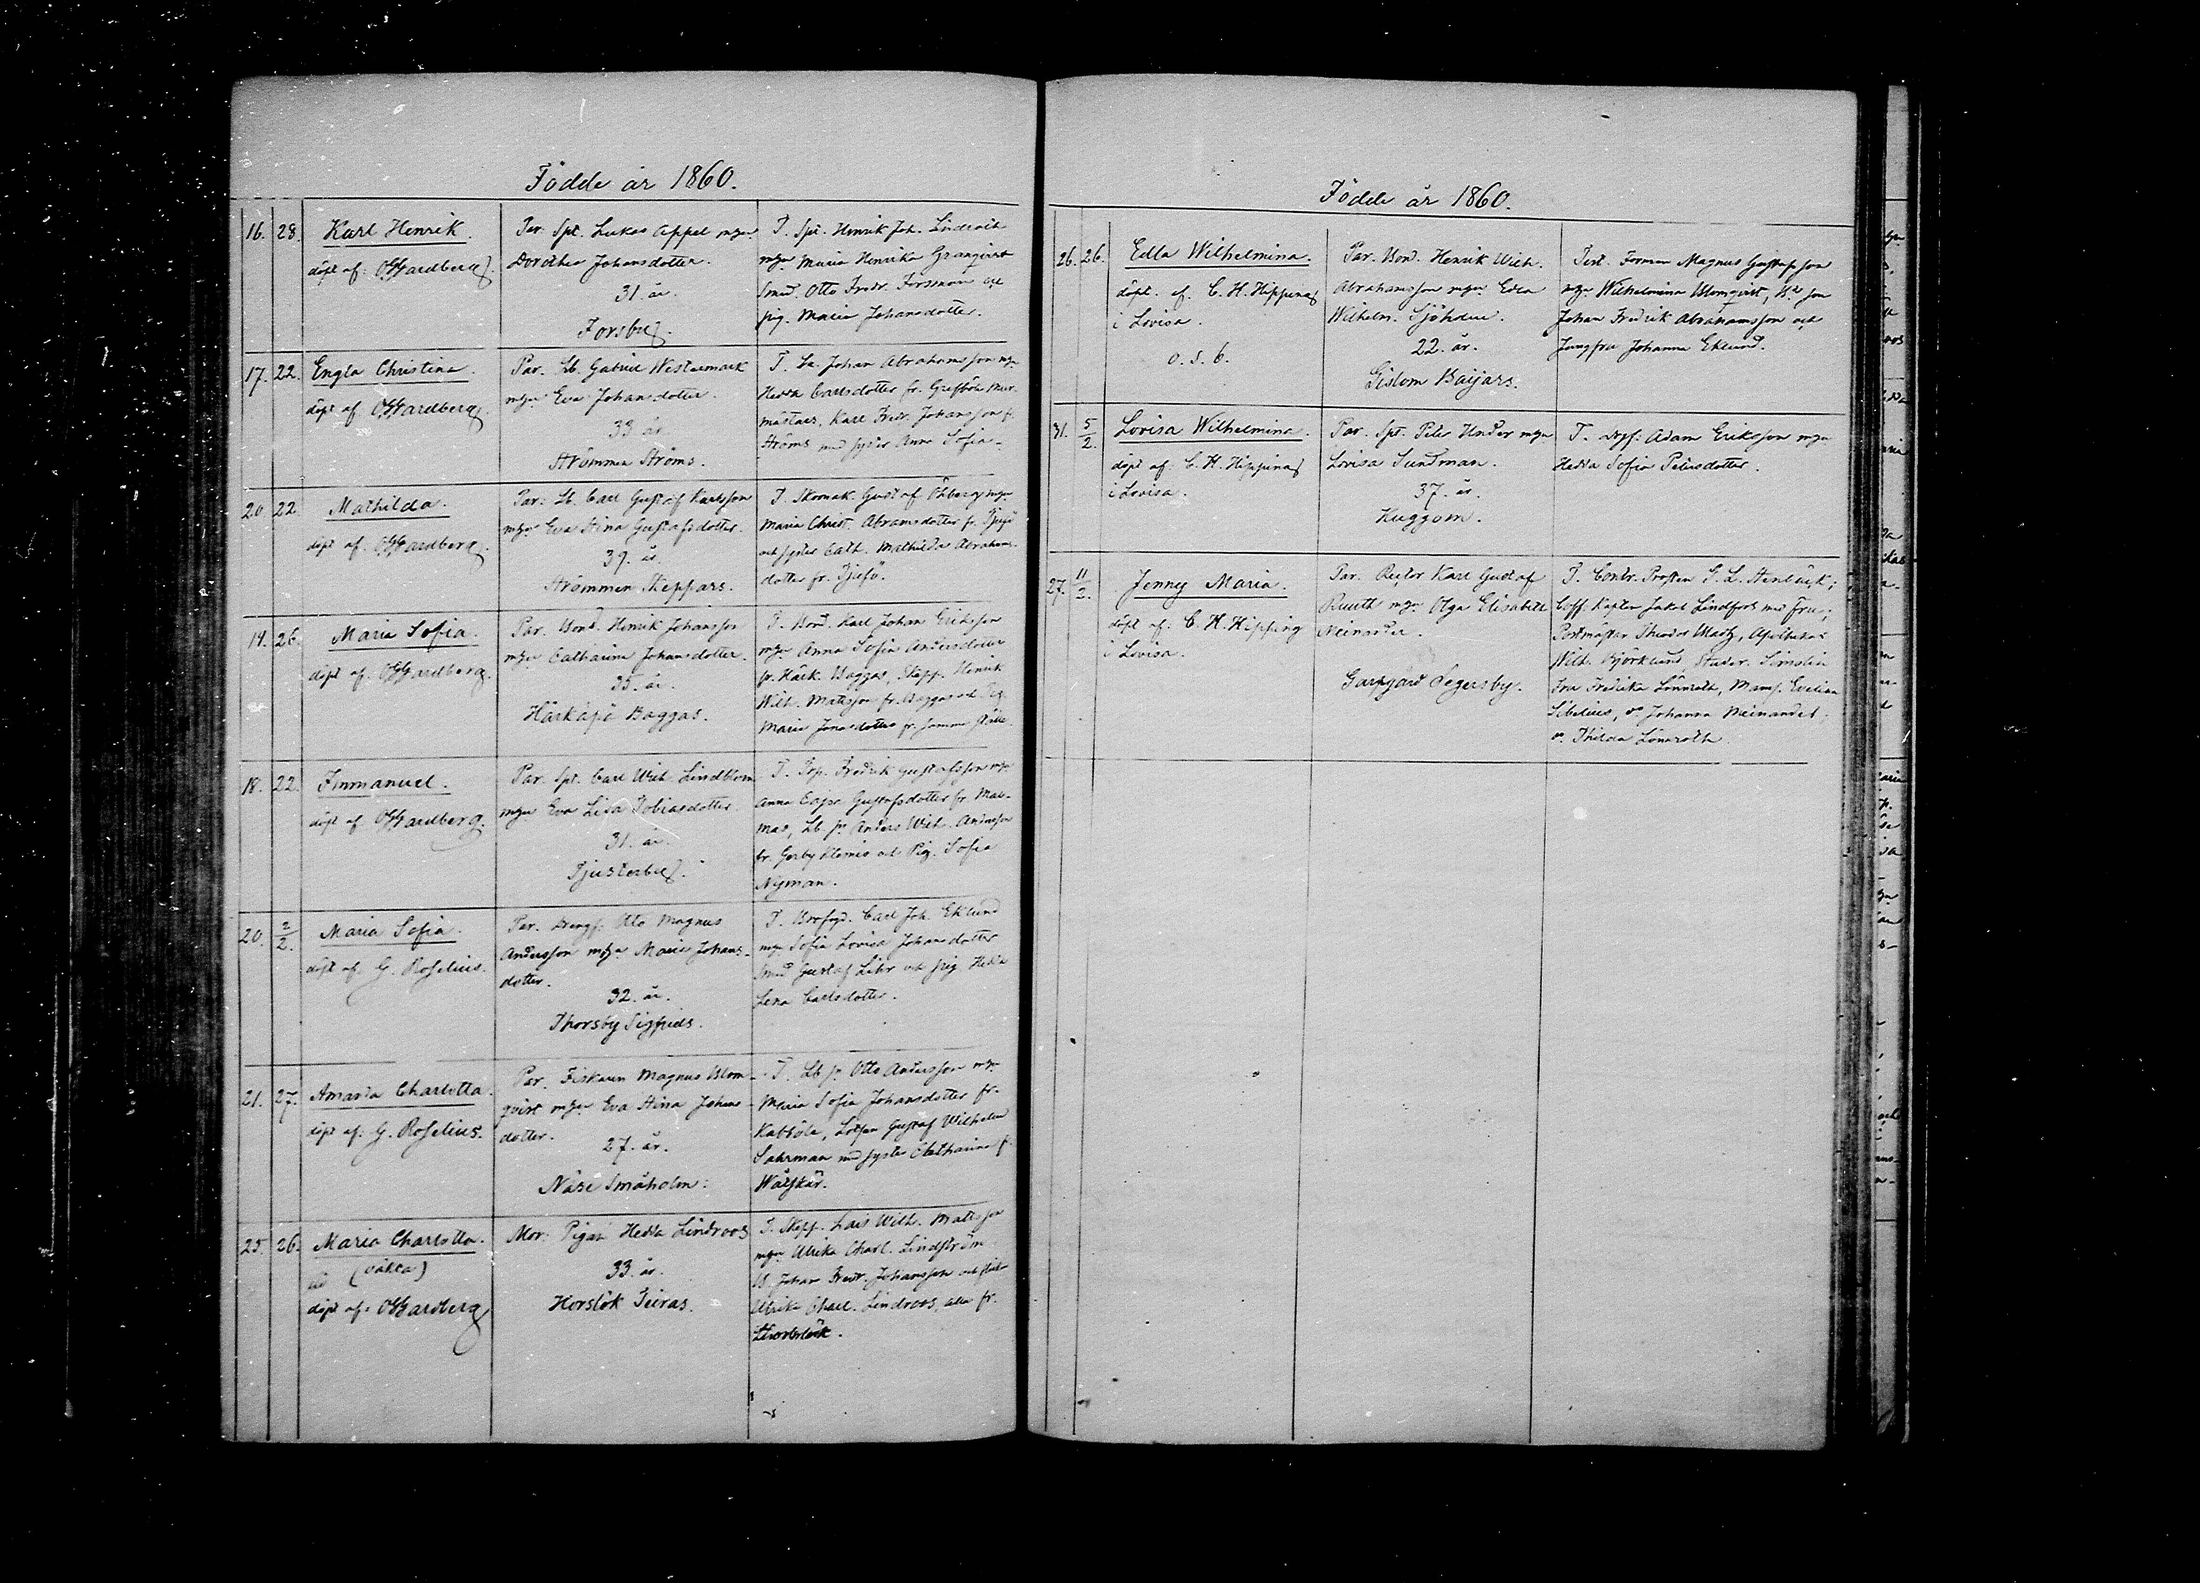 Födde år 1860.
16. 28. Karl Henrik.
döpt af
Par. Spt. Lukas Appel m hu
Dorothea Johansdotter.
31. år.
Forsby.
T. Spt. Henrik Joh. Lindroth
mhu Maria Henrika Granqvist
Smed. Otto Fredr. Forsman och
pig. Maria Johansdotter.
17. 22. Engla Christina.
döpt af
Par. Lb. Gabriel Westermark
mhu Eva Johansdotter.
33 år
Strömmen Ströms.
T. Johan Abrahamsson mhu
Hedda Carlsdotter fr. Mur-
mästare, Karl Fredr. Johansson f.
Ströms med syster Anna Sofia
20. 22. Mathilda.
döpt af
Par. Lb. Carl Gustaf Karlsson
mhu Eva Stina Gustafsdotter.
39. år
Strömmen Skeppars.
T. Skomak. Gustaf Öhberg mhu
Maria Christ. Abramsdotter fr. Tjusö
och syster Cath. Mathilda Abrahams-
dotter fr. Tjusö.
19. 26. Maria Sofia.
döpt af
Par. Bond. Henrik Johansson
mhu Catharina Johansdotter.
35. år.
Härkäpä Baggas.
T. Bond. Karl Johan Eriksson
mhu Anna Sofia Andersdotter
fr. Härk. Baggas, Skepp. Henrik
Wilh. Matsson fr. Baggas och Pig.
Maria Jonasdotter fr. samma ställe.
18. 22. Immanuel.
döpt af
Par. Spt. Carl Wilh. Lindblom
mhu Eva Lisa Tobiasdotter.
31. år.
Tjusterby.
T. Trp. Fredrik Gustafsson mhu
Anna Cajsa Gustafsdotter fr. Mal-
mas, Lb. sn Anders Wilh. Andersson
fr. Gerby Klemis och Pig. Sofia
Nyman.
20. 2/2. Maria Sofia.
döpt af G. Roselius.
Par. Drengs. Otto Magnus
Andersson mhu Maria Johans-
dotter.
32. år.
Thorsby Sigfrids.
T. Carl Joh. Eklund
mhu Sofia Lovisa Johansdotter
Smed Gustaf och pig Hedda
Lena Carlsdotter.
21. 27. Amanda Charlotta.
döpt af G. Roselius.
Par. Fiskaren Magnus Blom-
qvist mhu Eva Stina Johans-
dotter.
27. år.
Näse Småholm.
T. Lb sn Otto Andersson mhu
Maria Sofia Johansdotter fr.
Kabböle, Lotsen Gustaf Wilhelm
med syster Catharina f.
25. 26. Maria Charlotta.
(oäkta)
döpt af
Mor. Pigan Hedda Lindroos
33. år.
Horslök Teiras.
T. Skepp. Lars Wilh. Matsson
mhu Ulrika Charl. Lindström
Johan Fredr. Johansson och
Ulrika Charl. Lindroos, alla fr.
Födde år 1860.
26. 26. Edla Wilhelmina.
döpt. af. C. H. Hipping
i Lovisa.
o. s. b.
Par. Bond. Henrik Wilh.
Abrahamsson mhu Edla
Wilhelm. Sjöholm.
22. år.
Gislom Baijars.
Test. Forman Magnus Gustafsson
mhu Wilhelmina Blomqvist, Bd son
Johan Fredrik Abrahamsson och
Jungfru Johanna Eklund.
31. 5/2. Lovisa Wilhelmina.
döpt af C. H. Hipping
i Lovisa.
Par. Spt. Peter Under mhu
Lovisa Sundman.
37. år.
Kuggom.
T. Adam Eriksson mhu
Hedda Sofia Petersdotter.
27. 11/2. Jenny Maria.
döpt af C. H. Hipping
i Lovisa.
Par. Rector Karl Gustaf
Ruuth mhu Olga Elisabeth
Meinander.
Garpgård Segersby.
T. Contr. Prosten G. L. Stenbäck;
Coff. Kapten Jakob Lindfors med Fru;
Postmästar Theodor Apothekar
Wilh. Björklund, Studer. Simelin
Fru Fredrika Lönnroth, Mams. Evelina
Sibelius, Johanna Meinander,
Thilda Lönnroth.